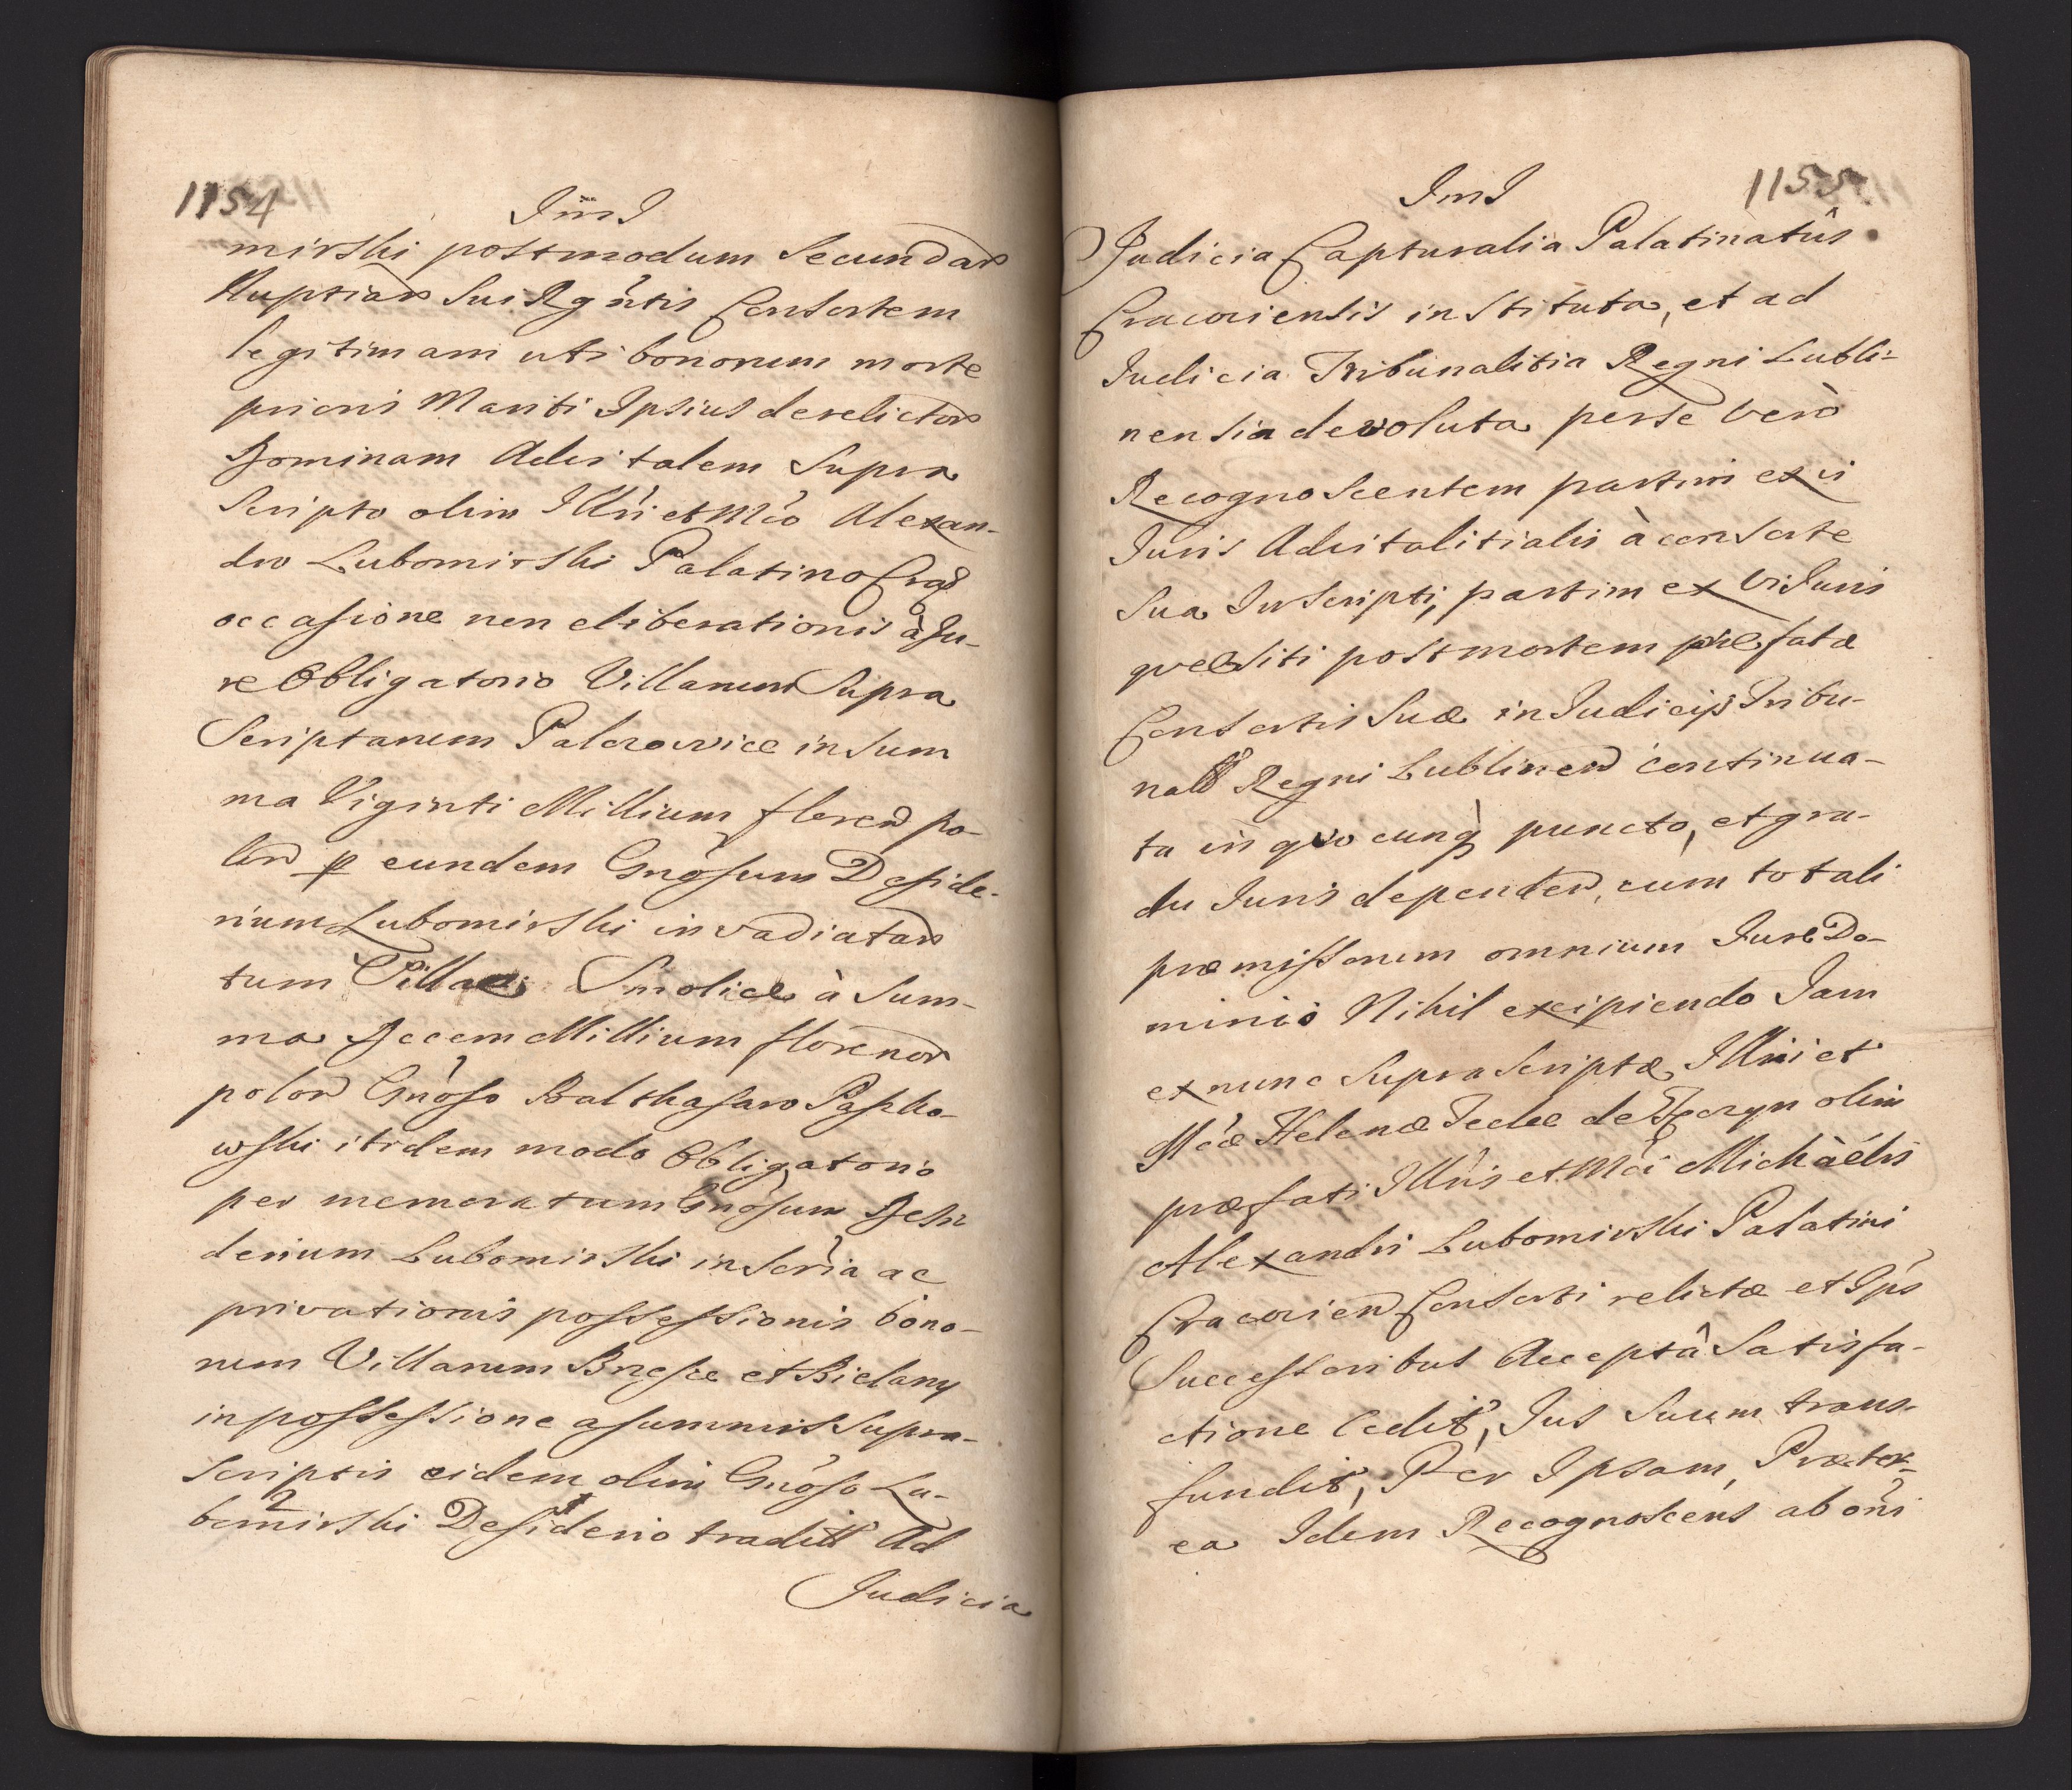 1154
JmJ
mirski postmodum Secundar
Nuptiar sui Rgńtis Consortem
legitimam uti bonorum morte
prioris Mariti Ipsius derelictor
Dominam Advitalem Supra
Scripto olim Illŕi et Mćo Alexan-
dro Lubomirski Palatino Crac
occasione non eliberationis à Ju-
re Obligatorio Villarum Supra
Scriptarum Palczowice in Sum
ma Viginti Millium floren po-
lon p eundem Gnosum Deside-
rium Lubomirski invadiatar
tum Villae Smolice à Sum-
ma Decem Millium florenor
polon Gnoso Balthasaro Pasko-
wski itidem modo Obligatorio
per memoratum Gnosum Desi
derium Lubomirski inscria ac
privationis possessionis bono-
rum Villarum Brzescе et Bielany
in possessione a summis supra-
scriptis eidem olim Gnoso Lu-
bomirski Desiderio tradit Ad
Judicia
1155
JmJ
Judicia Capturalia Palatinatûs
Cracoviensis instituta, et ad
Judicia Tribunalitia Regni Lubli-
nensia devoluta per se verò
Recognoscentem partim ex vi
Juris Advitalitialis à consorte
Sua Inscripti, partim ex vi Juris
quaesiti post mortem praefatæ
Consortis Suæ in Judicijs Tribu-
nal Regni Lublinen continua-
ta in quocunq puncto, et gra-
du Juris dependen, cum totali
præmissorum omnium Jure Do-
minio Nihil excipiendo Jam
ex nunc Supra scriptæ Illŕi et
Mćæ Helenæ Teclæ de olim
præfati Illŕis et Mći Michàélis
Alexandri Lubomirski Palatini
Cracovien Consorti relictæ et Ips
Successoribus Acceptâ Satisfa-
ctione Cedit, Jus Suum trans-
fundit, Per Ipsam, Præter-
ea Idem Recognoscens ab oni